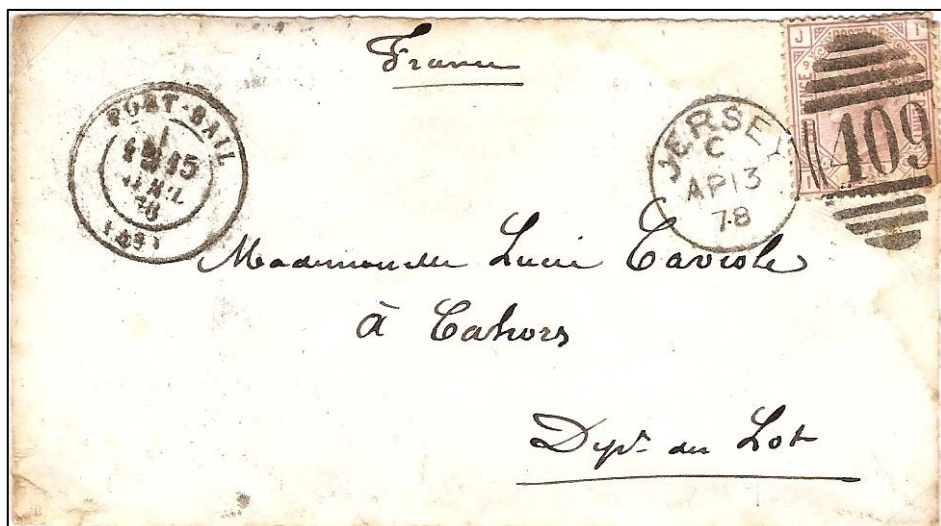 France
PORT-BAIL
15
78
JERSEY
C
AP 13
78
409
J I
Mademoiselle Lucie Caviole
à Cahors
Dépt. du Lot